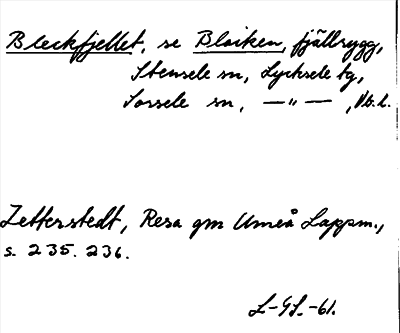 Bleckfjellet, se Blaiken, fjällrygg,
Stensele sn, Lycksele tg,
Sorsele sn, —"—, Vb.l.
Zetterstedt, Resa gm Umeå Lappm.,
s. 235. 236.
L-GS.-61.